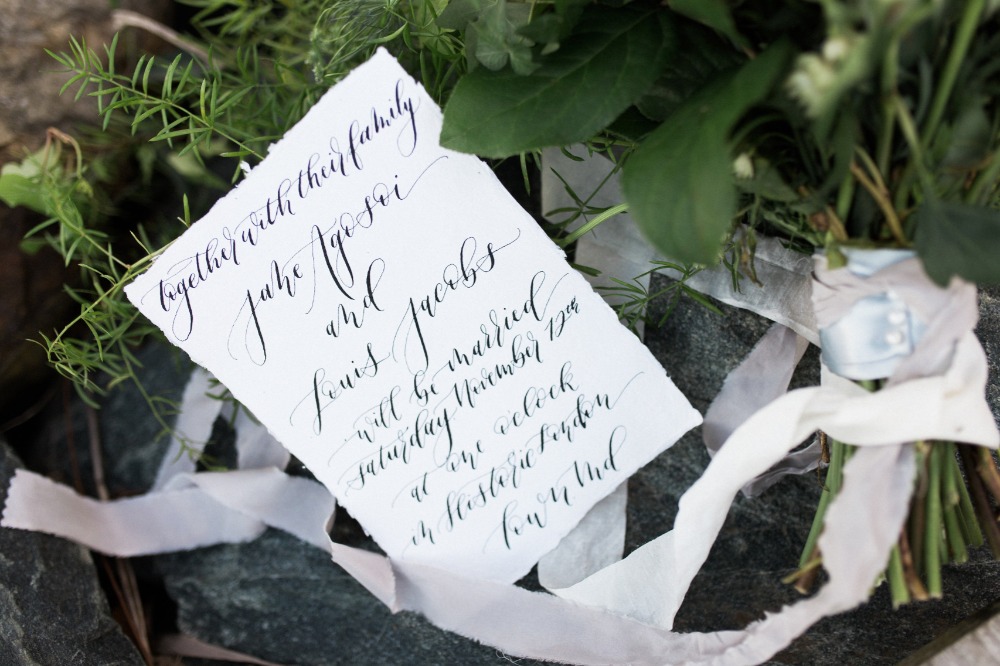 together with their family
Jane Agosoi
and
Louis Jacobs
will be married
saturday November 12th
at one oclock
in Historic London
Town Md